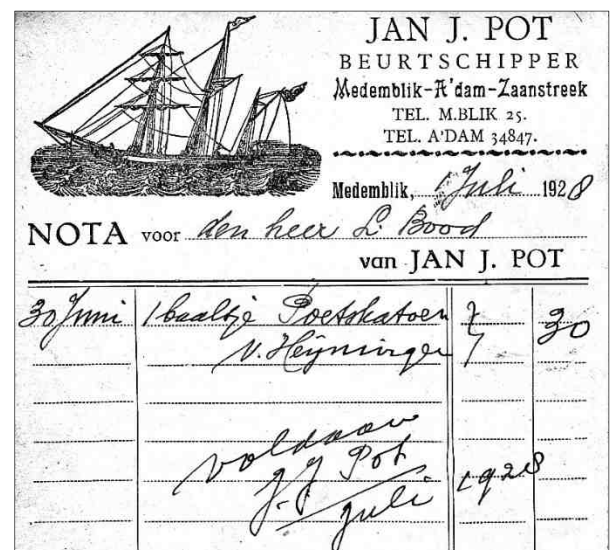 JAN J. POT
BEURTSCHIPPER
Medemblik-A'dam-Zaanstreek
TEL. M.BLIK 25.
TEL. A'DAM 34847.
Medemblik, 1 Juli 1928
NOTA voor den heer L. Bood
van JAN J. POT
30 Juni 1 baaltje Poetskatoen 30
v. Heijningen
voldaan
J. J Pot
juli 1928